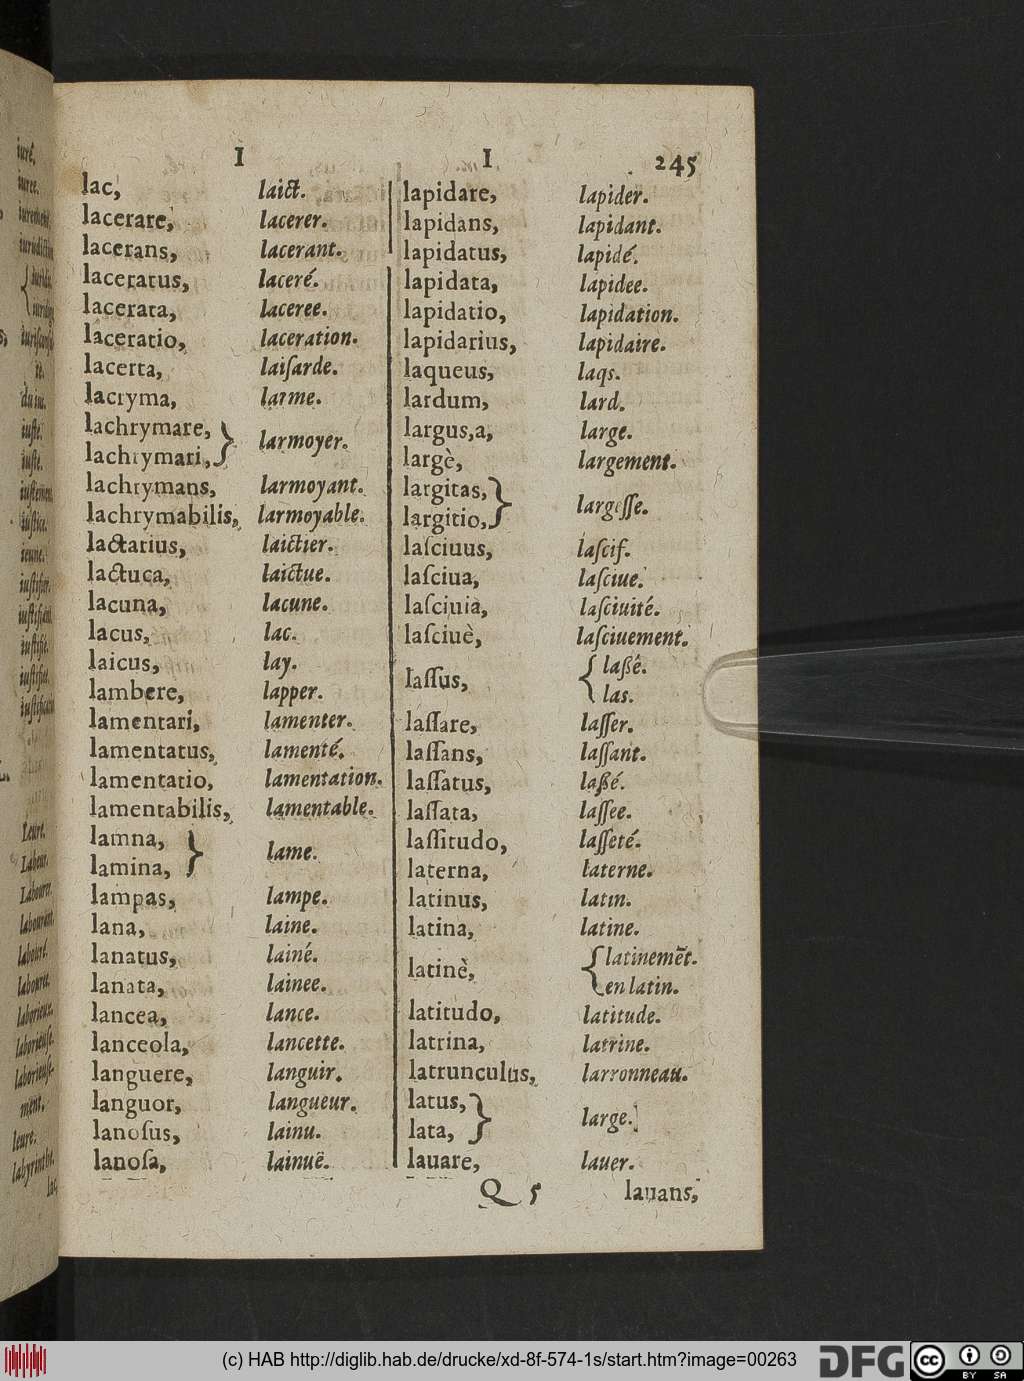 I I 245
lac, laict.
lacerare, lacerer.
lacerans, lacerant.
laceratus, laceré.
lacerata, laceree.
laceratio, laceration.
lacerta, laiſarde.
lacryma, larme.
lachrymare, }
lachrymari, } larmoyer.
lachrymans, larmoyant.
lachrymabilis, larmoyable.
lactarius, laictier.
lactuca, laictue.
lacuna, lacune.
lacus, lac.
laicus, lay.
lambere, lapper.
lamentari, lamenter.
lamentatus, lamenté.
lamentatio, lamentation.
lamentabilis, lamentable.
lamna, }
lamina, } lame.
lampas, lampe.
lana, laine.
lanatus, lainé.
lanata, lainee.
lancea, lance.
lanceola, lancette.
languere, languir.
languor, langueur.
lanoſus, lainu.
lanoſa, lainuë.
lapidare, lapider.
lapidans, lapidant.
lapidatus, lapidé.
lapidata, lapidee.
lapidatio, lapidation.
lapidarius, lapidaire.
laqueus, laqs.
lardum, lard.
largus,a, large.
largè, largement.
largitas, }
largitio, } largeſſe.
laſciuus, laſcif.
laſciua, laſciue.
laſciuia, laſciuité.
laſciuè, laſciuement.
laſſus, { laßé.
{ las.
laſſare, laſſer.
laſſans, laſſant.
laſſatus, laßé.
laſſata, laſſee.
laſſitudo, laſſeté.
laterna, laterne.
latinus, latin.
latina, latine.
latinè, { latinemēt.
{ en latin.
latitudo, latitude.
latrina, latrine.
latrunculus, larronneau.
latus, }
lata, } large.
lauare, lauer.
Q 5 lauans,
(c) HAB http://diglib.hab.de/drucke/xd-8f-574-1s/start.htm?image=00263
DFG
cc BY SA